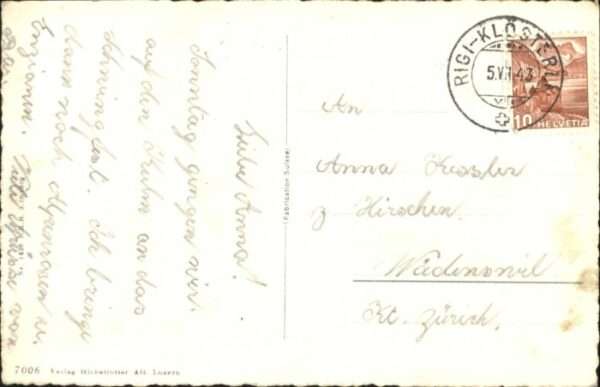 Liebe Anna!
Sonntag gingen wir
auf den Kulm an das
Schwingfest. Ich bringe
dann noch Alpenrosen u.
Enzianen.
viele Grüsse von
An
Anna Kessler
z Hirschen
Wädenswil
Kt. Zürich.
RIGI-KLÖSTERLI
5.VII.43
10 HELVETIA
(Fabrication Suisse)
7006 Verlag Alt. Luzern